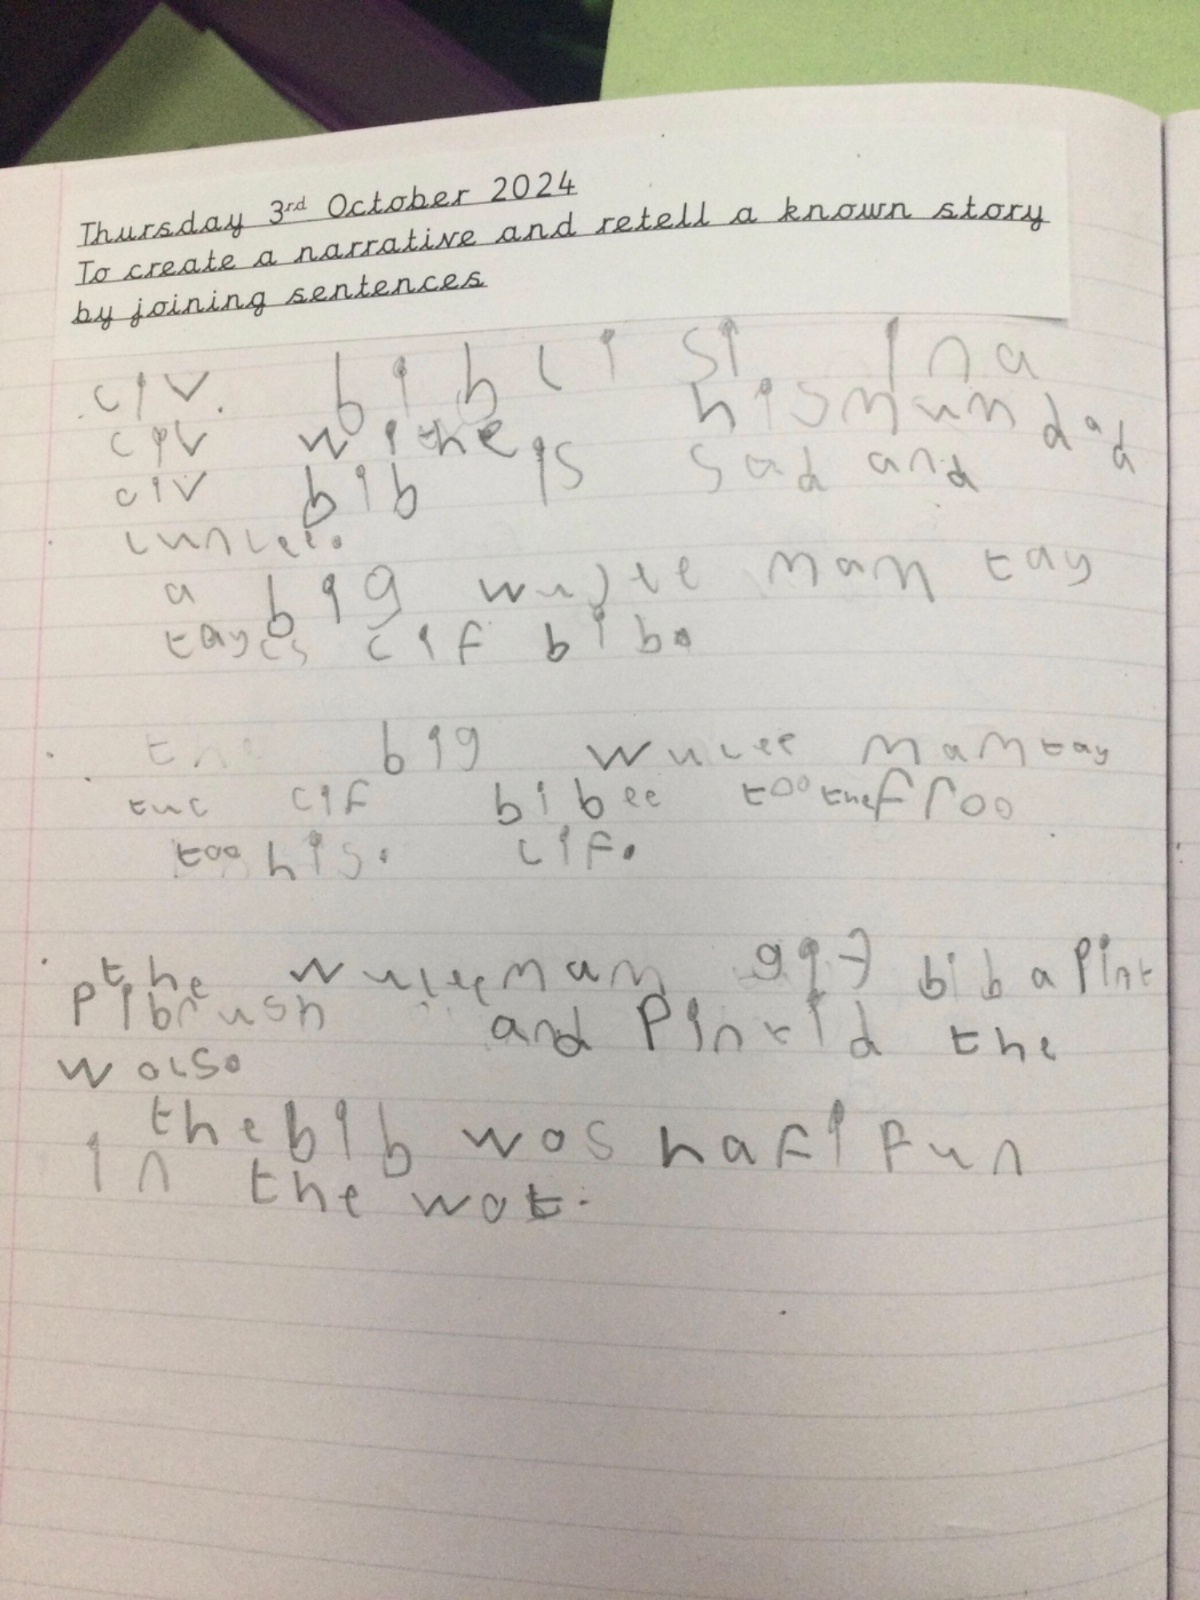 Thursday 3rd October 2024
To create a narrative and retell a known story
by joining sentences
civ. bib li si in a
civ withe hismum dad
civ bib is sad and
lunlee.
a big wulee mam tay
taycs cif bib.
the big wulee mam tay
tuc cif bibee too the froo
too his. cif.
the wulee mam gif bib a Pint
Pibrush and Pintid the
wols.
the bib wos hafi fun
in the wot.